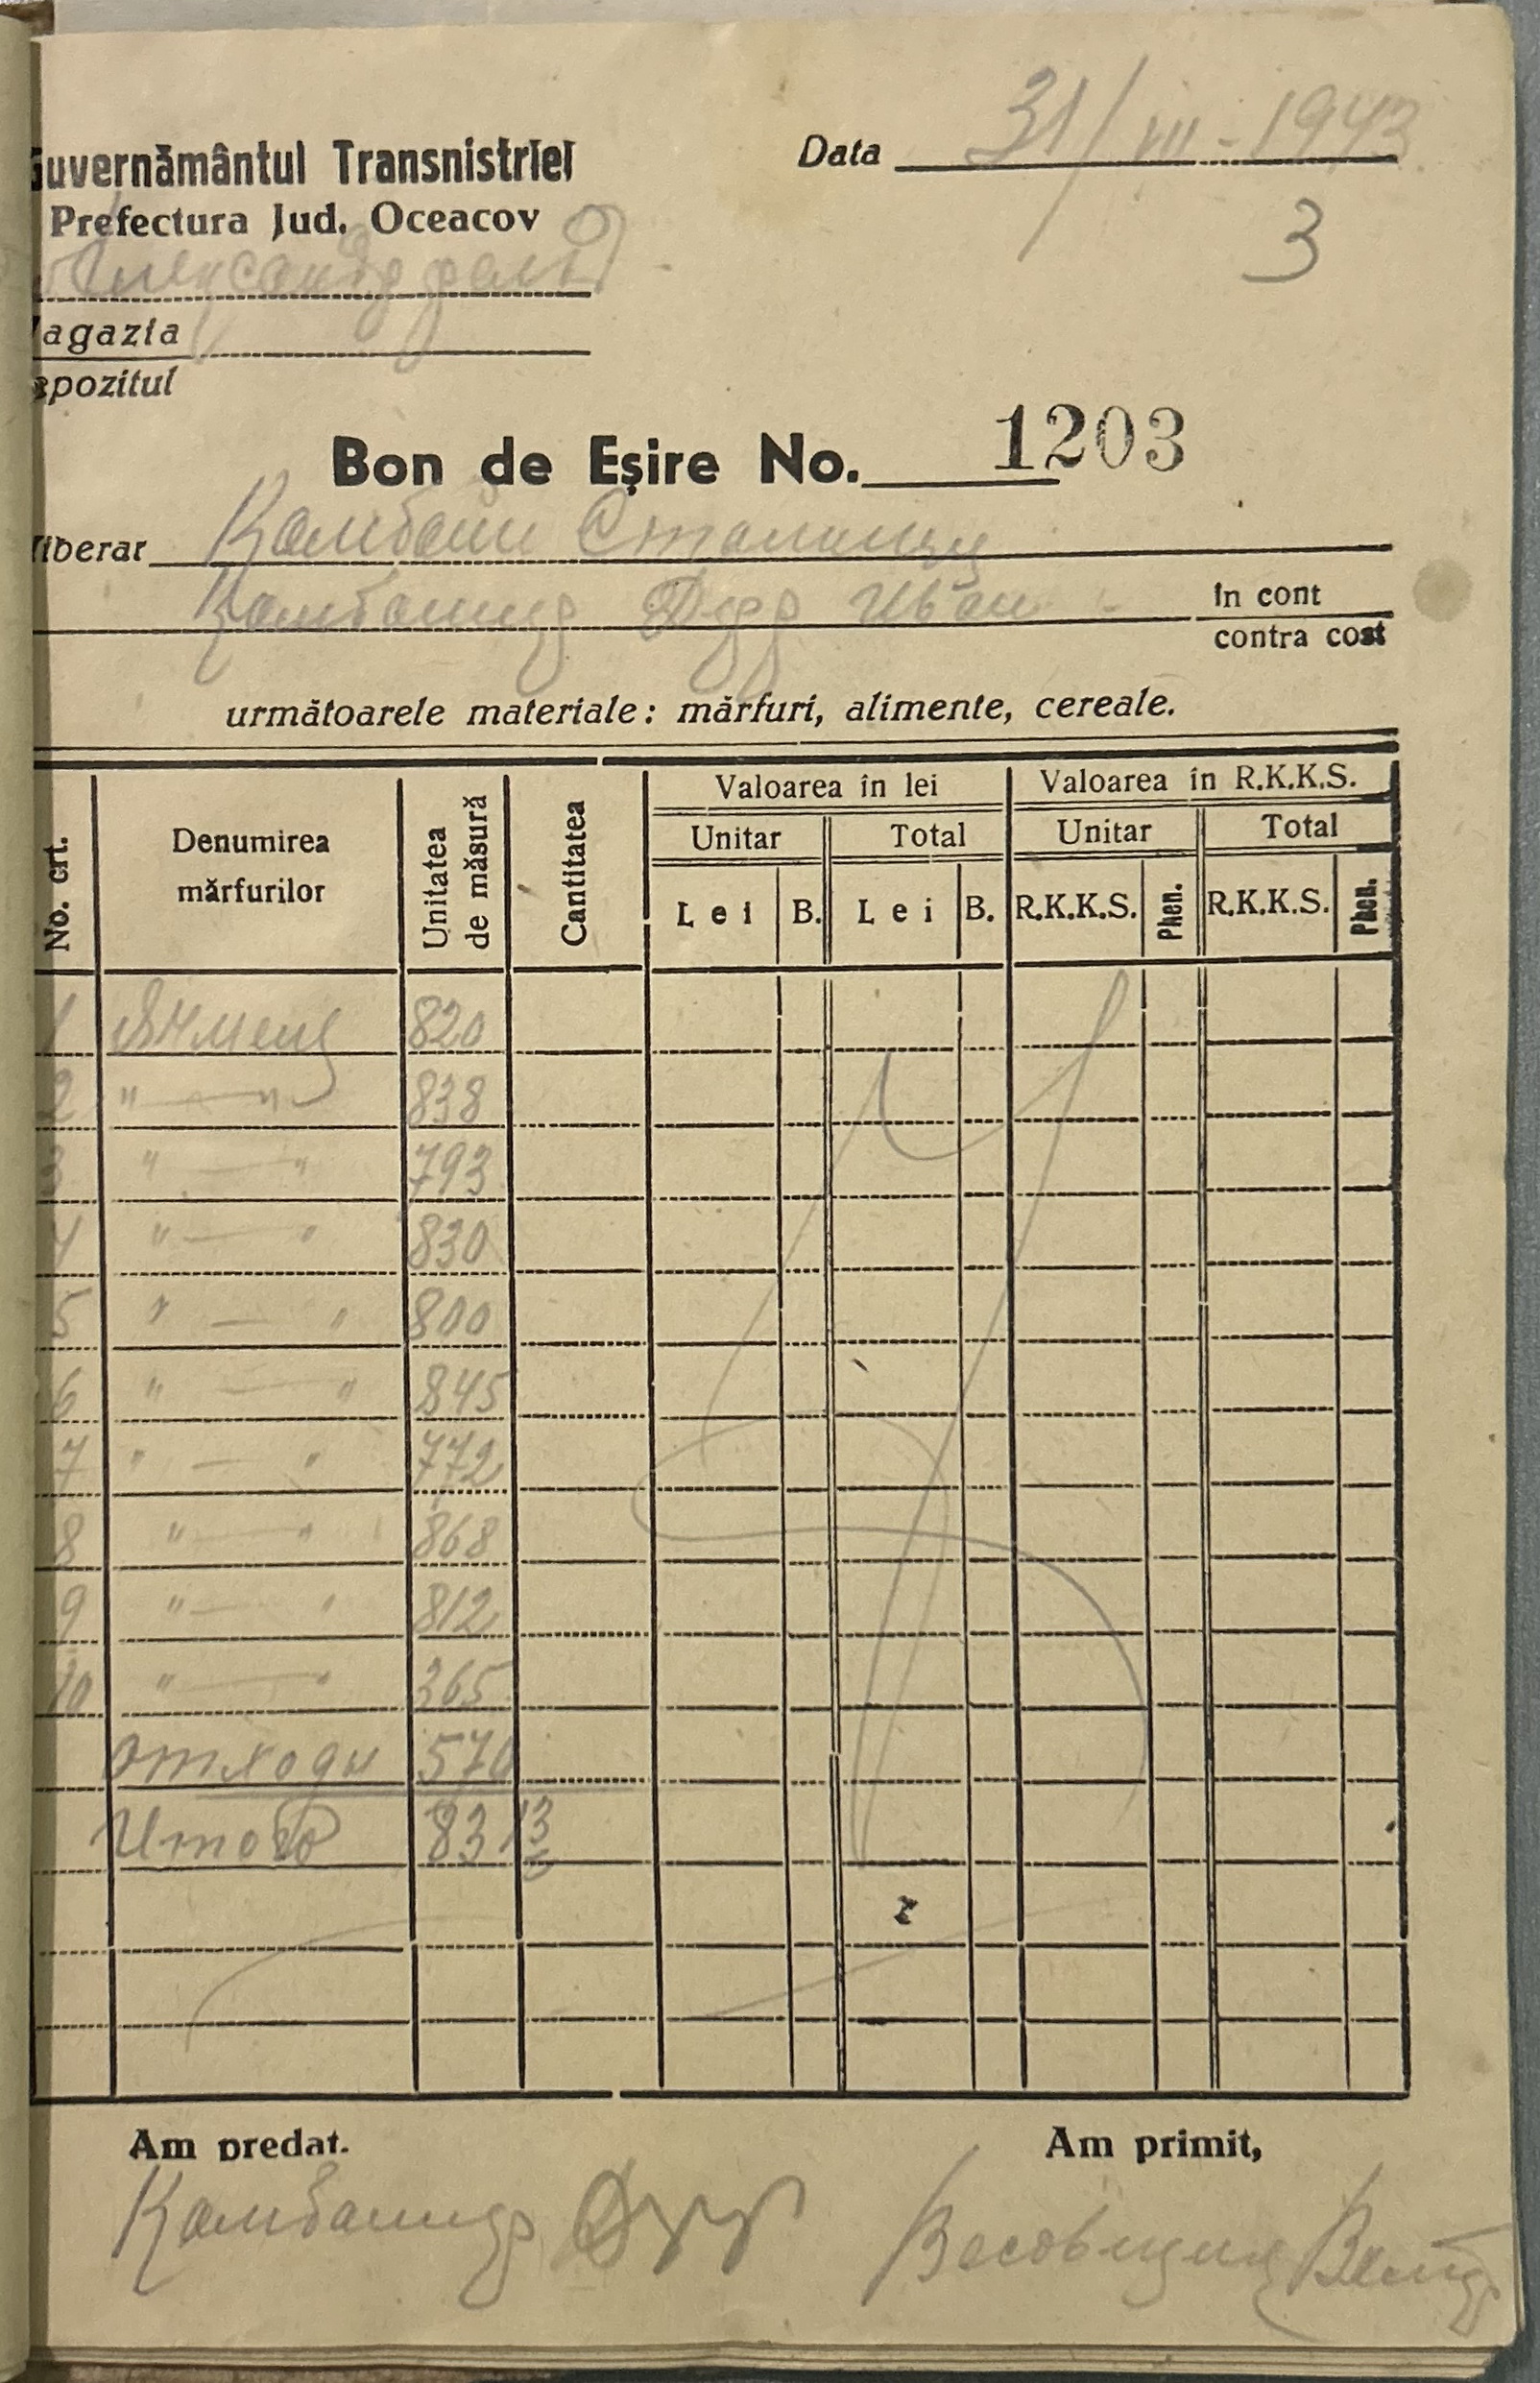 Guvernământul Transnistriei
Data 31/VII-1943
Prefectura Jud. Oceacov
3
Александрфельд
agazia
epozitul
Bon de Eșire No. 1203
liberar Комбайн Сталинец
Комбайнер Дерр Иван
în cont
contra cost
următoarele materiale: mărfuri, alimente, cereale.
No. crt. Denumirea mărfurilor Unitatea de măsură Cantitatea Valoarea în lei Valoarea în R.K.K.S.
Unitar Total Unitar Total
Lei B. Lei B. R.K.K.S. Phen. R.K.K.S. Phen.
1 Ячмень 820
2 " — " 838
3 " — " 793
4 " — " 830
5 " — " 800
6 " — " 845
7 " — " 772
8 " — " 868
9 " — " 812
10 " — " 365
отходы 570
Итого 8313
Am predat.
Am primit,
Комбайнер
Весовщик